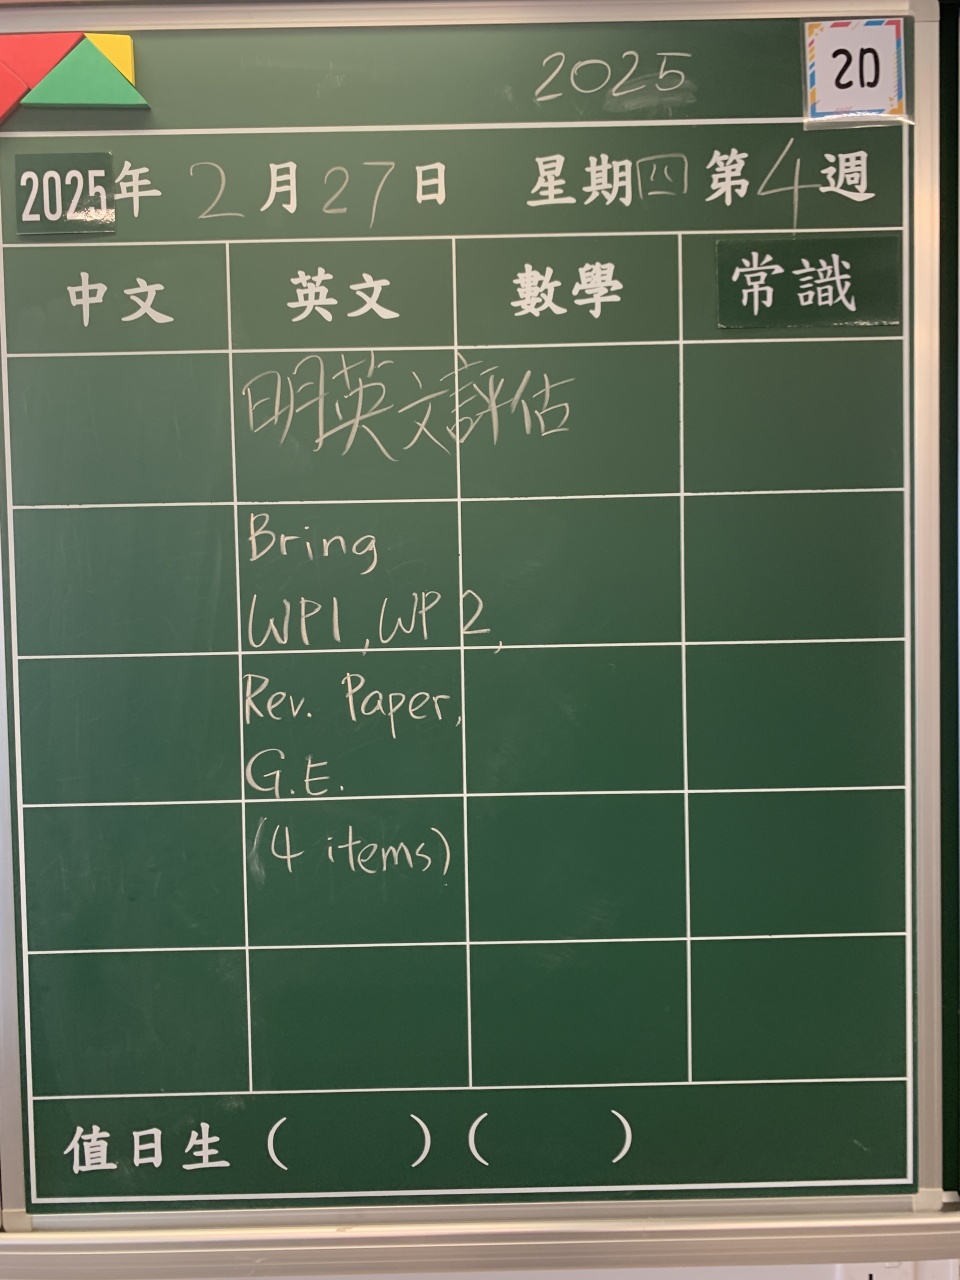 2025
2D
2025年 2月27日 星期四 第4週
中文 英文 數學 常識
明英文評估
Bring
WP1, WP2,
Rev. Paper,
G.E.
(4 items)
值日生 ( ) ( )